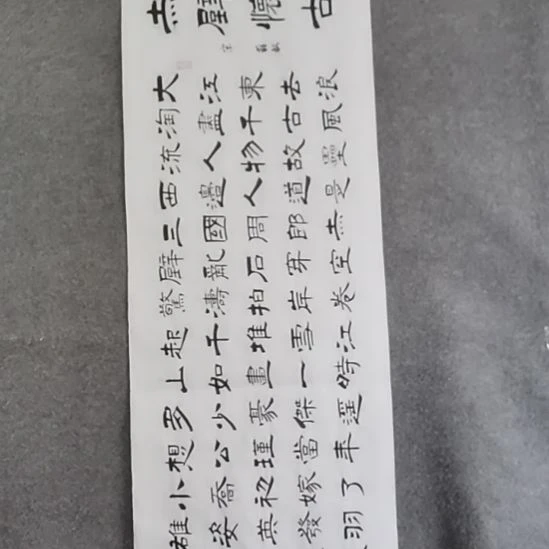 赤壁懷古
宋 蘇軾
大江東去浪
淘盡千古風
流人物故壘
西邊人道是
三國周郎赤
壁亂石穿空
驚濤拍岸卷
起千堆雪江
山如畫一時
多少豪傑遥
想公瑾當年
小喬初嫁了
雄姿英發羽